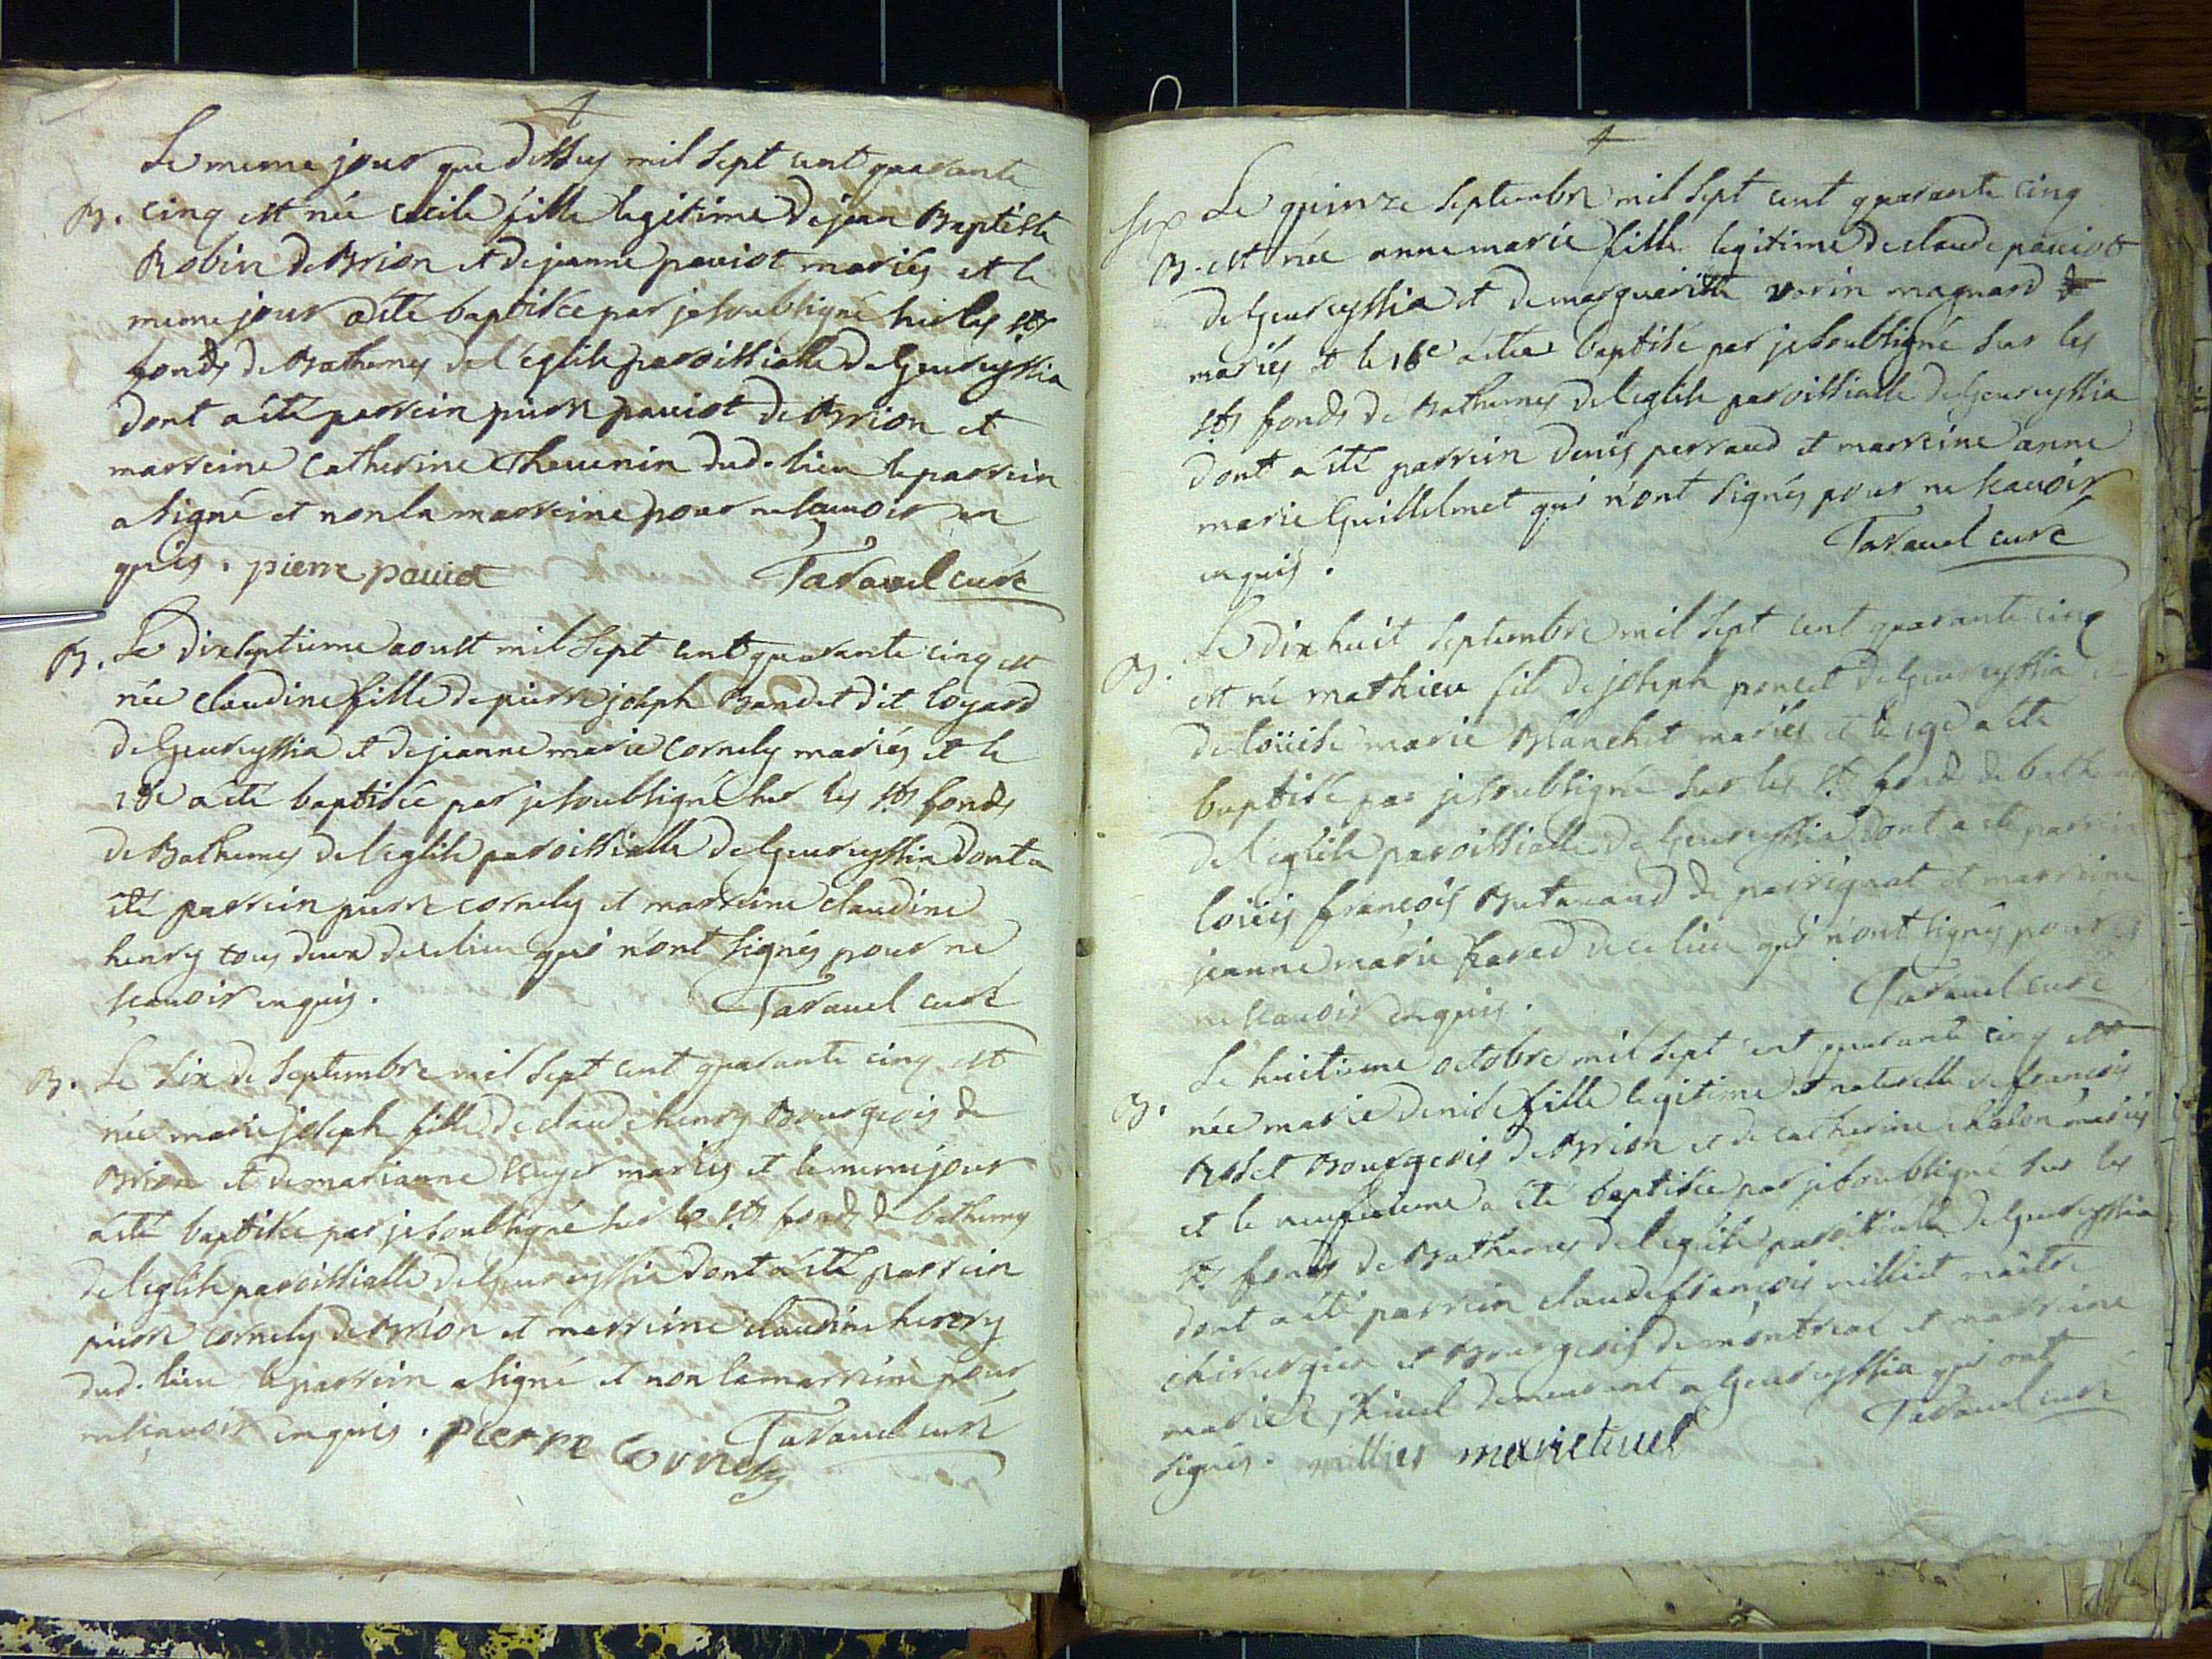 Le meme jour que dessus mil sept cent quarante
B. cinq est née cecile fille legitime de jean Baptiste
Robin de Brion et de jeanne pauiot mariés et le
meme jour a été baptisée par je soubsigné sur les sts
fonds de Bathemes de l'eglise paroissialle de Geureyssia
dont a été parrein pierre pauiot de Brion et
marreine Catherine Theuenin dud. lieu le parrein
a signé et non la marreine pour ne scauoir en
quis. pierre pauiot Tarauel curé
B. Le dixseptieme aoust mil sept cent quarante cinq est
née claudine fille de pierre joseph Bandet dit loyard
de Geureyssia et de jeanne marie cornely mariés et le
18e a été baptisée par je soubsigné sur les sts fonds
de Bathemes de l'eglise paroissialle de Geureyssia dont a
été parrein pierre cornely et marreine claudine
henry tous deux de ce lieu qui n'ont signés pour ne
scauoir enquis. Tarauel curé
B. Le six de Septembre mil sept cent quarante cinq est
née marie joseph fille de claude henry Bourgeois de
Brion et de marianne mariés et le meme jour
a été baptisée par je soubsigné sur les sts fonds de bathemes
de l'eglise paroissialle de Geureyssia dont a été parrein
pierre cornely de Brion et marreine claudine henry
dud. lieu le parrein a signé et non la marreine pour
ne scauoir enquis. pierre Cornely Tarauel curé
4
Le quinze septembre mil sept cent quarante cinq
B. est née anne marie fille legitime de claude pauiot
de Geureyssia et de margueritte vorin magnard
mariés et le 16e a été baptisé par je soubsigné sur les
sts fonds de Bathemes de l'eglise paroissialle de Geureyssia
dont a été parrein denis perraud et marreine anne
marie Guillelmet qui n'ont signés pour ne scauoir
enquis. Tarauel curé
B. Le dix huit septembre mil sept cent quarante cinq
est né mathieu fils de joseph poncet de Geureyssia
de loüise marie Blanchet mariés et le 19e a été
baptisé par je soubsigné sur les st fonds de bathemes
de l'eglise paroissialle de Geureyssia dont a été parrein
loüis françois Butauand de et marreine
jeanne marie de ce lieu qui n'ont signés pour
ne scauoir enquis. Tarauel curé
Le huitieme octobre mil sept cent quarante cinq est
B. née marie denise fille legitime et naturelle de françois
Rosset Bourgeois de Brion et de catherine chalon mariés
et le neufuieme a été baptisée par je soubsigné sur les
sts fonds de Bathemes de l'eglise paroissialle de Geureyssia
dont a été parrein claude françois milliet maître
chirurgien et Bourgeois de montreal et marreine
marie demeurant a Geureyssia qui ont
signés. Tarauel curé